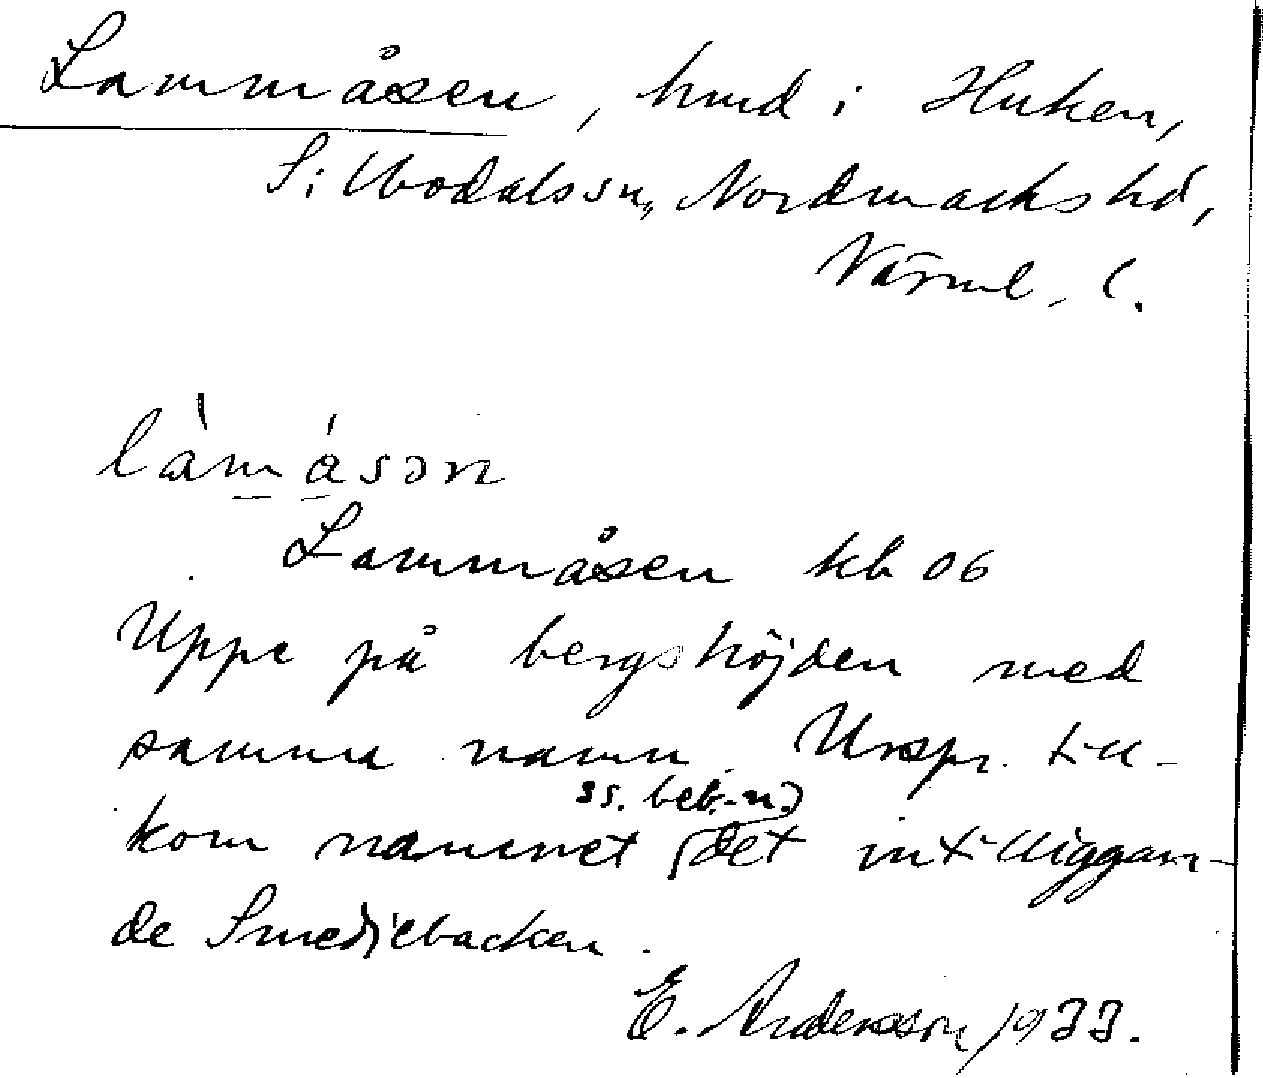 Lammåsen, hmd i Huken,
Silbodals sn, Nordmarks hd,
Värml. l.
làmásən
Lammåsen kb 06
Uppe på bergshöjden med
samma namn. Urspr. till-
kom namnet ss. beb.-n. det intilliggan-
de Smedjebacken.
E. Andersson 1933.